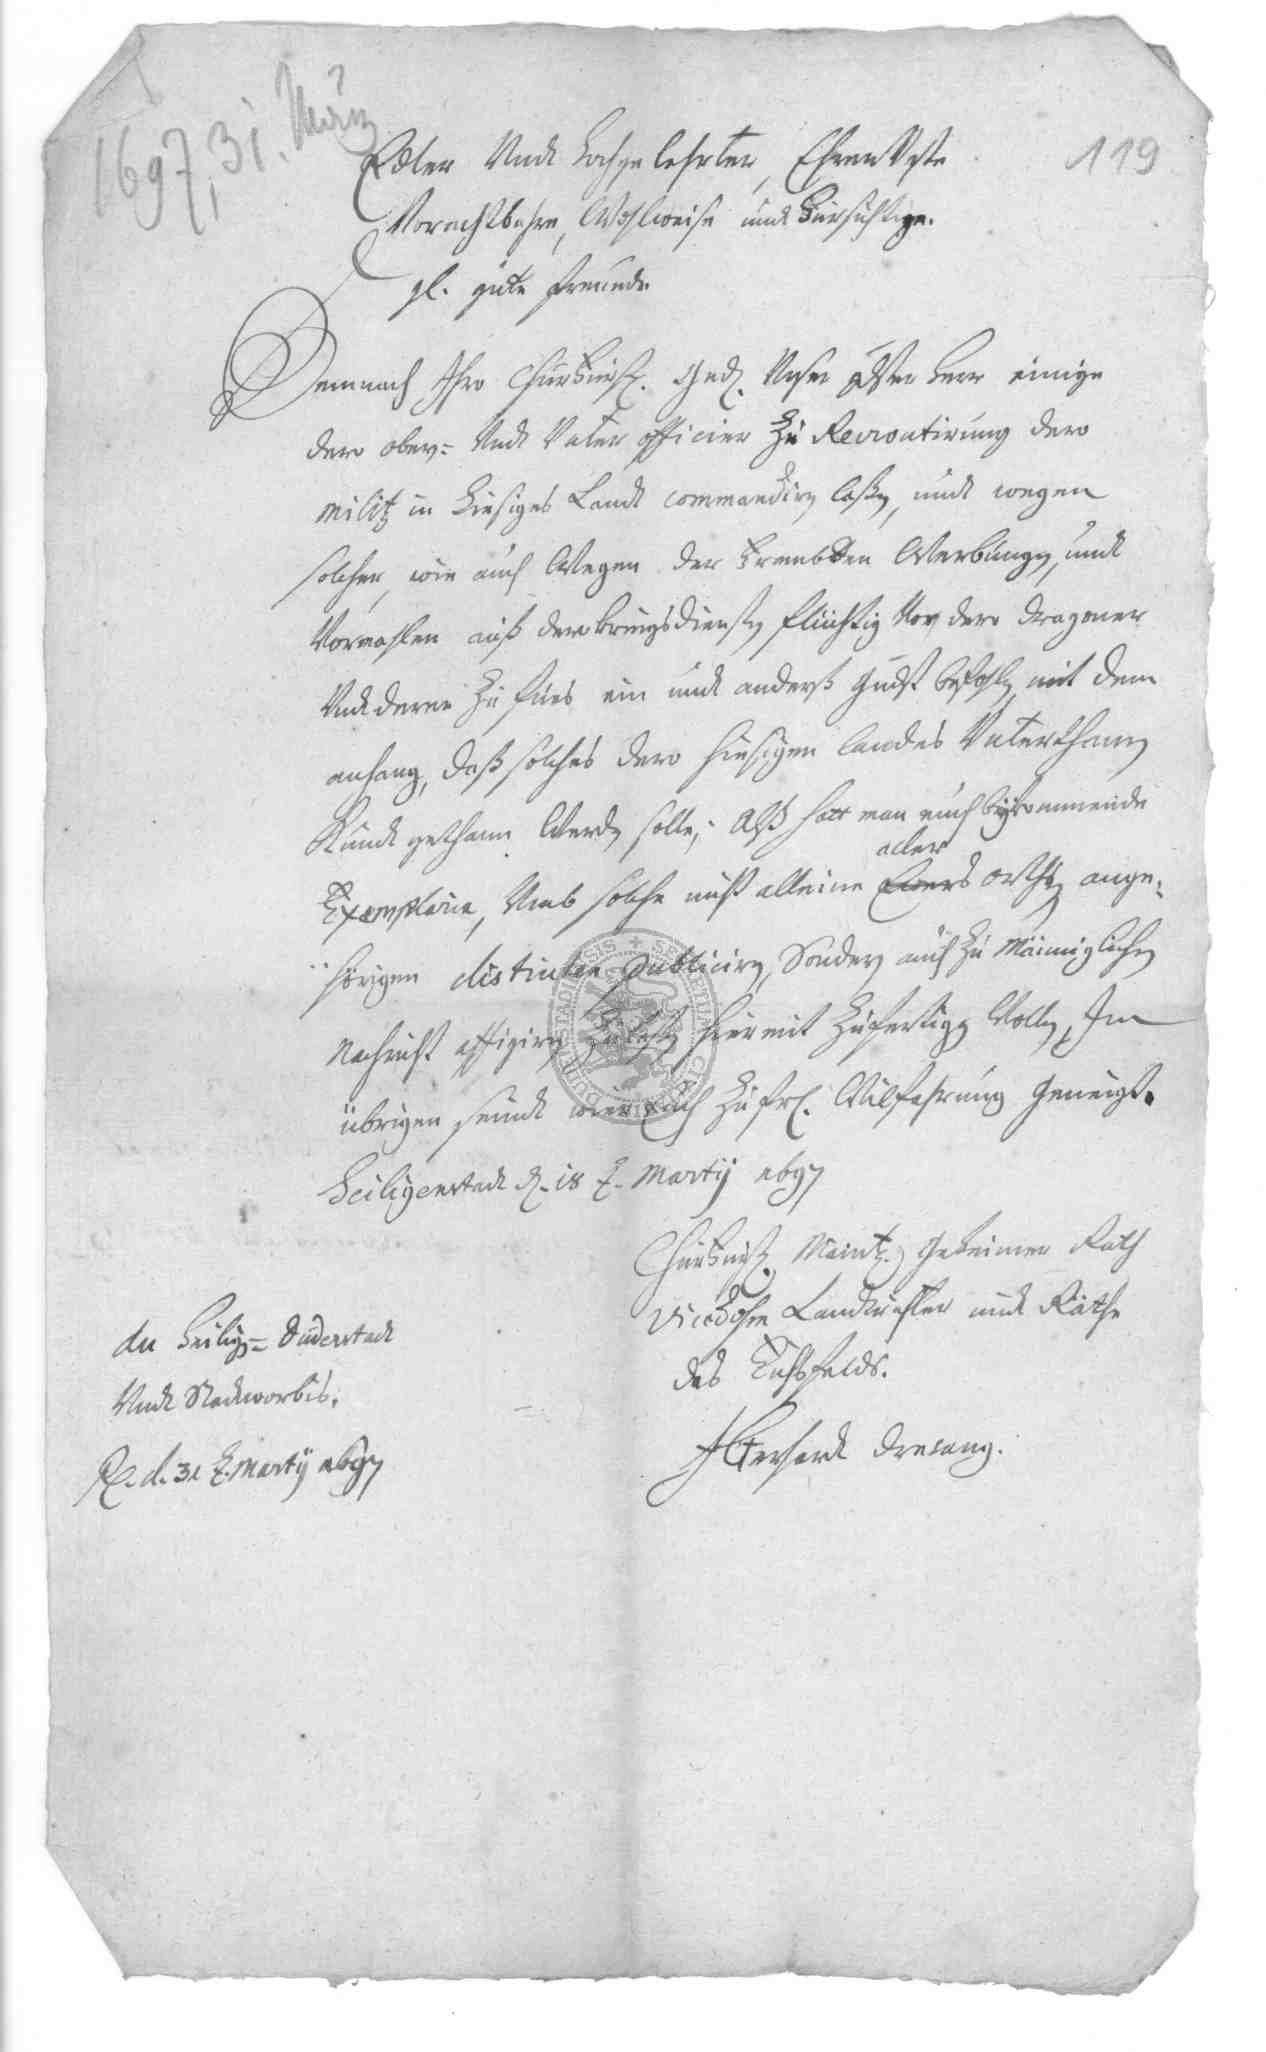 1697, 31. März
119
Edler Undt hochgelehrter, EhrenVeste
Vorachtbahre, Wohlweise undt Fürsichtige.
gl. gute freunde
Demnach Ihro Churfürstl. Gnd. Unser Herr einige
dero ober- Undt Unter officier Zu Recroutirung dero
militz in hiesiges Landt commandirn laßen, undt wegen
solcher, wie auch Wegen der frembden Werbungen, undt
Vormahlen auß dero kriegsdiensten flüchtig dero dragoner
Undt derer Zu fues ein undt anderß gndst befohlen, mit dem
anhang, daß solches dero hiesigen landes Unterthanen
Kundt gethann Werden solle; Alß hatt man euch beykommende
aller
Exemplaria, Umb solche nicht alleine Ewers orths ange-
hörigen distincte publiciren, Sondern auch Zu Männiglichen
Nachricht affigiren Zu laßen hiermit Zufertigen Wollen, Im
übrigen seindt wier euch Zu frl. Wilfahrung geneigt.
Heiligenstadt d. 18 t. Martij 1697
Churfürstl. Maintz. Geheimer Rath
Vicedohm Landtrichter undt Räthe
des Eichsfelds.
an Heilig- Duderstadt
Undt Stadtworbis.
d. 31 t. Martij 1697
SIGILLUM CIVITATIS DUDERSTADIENSIS